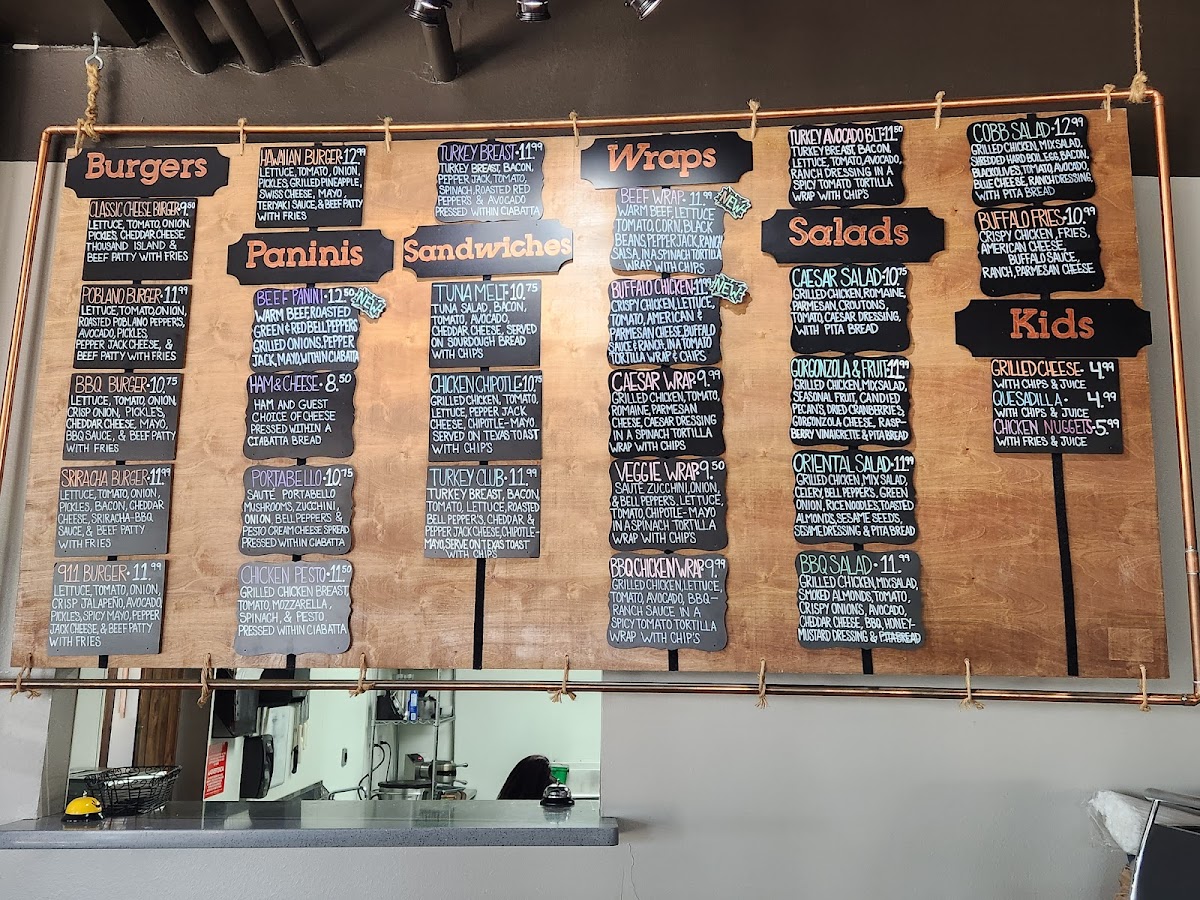 Burgers
CLASSIC CHEESE BURGER 9.50
LETTUCE, TOMATO, ONION,
PICKLES, CHEDDAR CHEESE,
THOUSAND ISLAND &
BEEF PATTY WITH FRIES
POBLANO BURGER • 11.99
LETTUCE, TOMATO, ONION,
ROASTED POBLANO PEPPERS,
AVOCADO, PICKLES,
PEPPER JACK CHEESE, &
BEEF PATTY WITH FRIES
BBQ BURGER • 10.75
LETTUCE, TOMATO, ONION,
CRISP ONION, PICKLES,
CHEDDAR CHEESE, MAYO,
BBQ SAUCE, & BEEF PATTY
WITH FRIES
SRIRACHA BURGER • 11.99
LETTUCE, TOMATO, ONION,
PICKLES, BACON, CHEDDAR
CHEESE, SRIRACHA-BBQ
SAUCE, & BEEF PATTY
WITH FRIES
911 BURGER • 11.99
LETTUCE, TOMATO, ONION,
CRISP JALAPEÑO, AVOCADO,
PICKLES, SPICY MAYO, PEPPER
JACK CHEESE, & BEEF PATTY
WITH FRIES
HAWAIIAN BURGER • 12.99
LETTUCE, TOMATO, ONION,
PICKLES, GRILLED PINEAPPLE,
SWISS CHEESE, MAYO,
TERIYAKI SAUCE, & BEEF PATTY
WITH FRIES
Paninis
BEEF PANINI • 12.50
NEW
WARM BEEF, ROASTED
GREEN & RED BELL PEPPERS
GRILLED ONIONS, PEPPER
JACK, MAYO, WITHIN CIABATTA
HAM & CHEESE • 8.50
HAM AND GUEST
CHOICE OF CHEESE
PRESSED WITHIN A
CIABATTA BREAD
PORTABELLO • 10.75
SAUTÉ PORTABELLO
MUSHROOMS, ZUCCHINI,
ONION, BELL PEPPERS &
PESTO CREAM CHEESE SPREAD
PRESSED WITHIN CIABATTA
CHICKEN PESTO • 11.50
GRILLED CHICKEN BREAST,
TOMATO, MOZZARELLA,
SPINACH, & PESTO
PRESSED WITHIN CIABATTA
TURKEY BREAST • 11.99
TURKEY BREAST, BACON,
PEPPER JACK, TOMATO,
SPINACH, ROASTED RED
PEPPERS & AVOCADO
PRESSED WITHIN CIABATTA
Sandwiches
TUNA MELT • 10.75
TUNA SALAD, BACON,
TOMATO, AVOCADO,
CHEDDAR CHEESE, SERVED
ON SOURDOUGH BREAD
WITH CHIP'S
CHICKEN CHIPOTLE • 10.75
GRILLED CHICKEN, TOMATO,
LETTUCE, PEPPER JACK
CHEESE, CHIPOTLE-MAYO
SERVED ON TEXAS TOAST
WITH CHIP'S
TURKEY CLUB • 11.99
TURKEY BREAST, BACON,
TOMATO, LETTUCE, ROASTED
BELL PEPPER'S, CHEDDAR &
PEPPER JACK CHEESE, CHIPOTLE-
MAYO, SERVE ON TEXAS TOAST
WITH CHIP'S
Wraps
BEEF WRAP • 11.99
NEW
WARM BEEF, LETTUCE
TOMATO, CORN, BLACK
BEANS, PEPPER JACK, RANCH
SALSA, IN A SPINACH TORTILLA
WRAP WITH CHIPS
BUFFALO CHICKEN • 11.99
NEW
CRISPY CHICKEN, LETTUCE,
TOMATO, AMERICAN &
PARMESAN CHEESE, BUFFALO
SAUCE & RANCH, IN A TOMATO
TORTILLA WRAP & CHIPS
CAESAR WRAP • 9.99
GRILLED CHICKEN, TOMATO,
ROMAINE, PARMESAN
CHEESE, CAESAR DRESSING
IN A SPINACH TORTILLA
WRAP WITH CHIPS
VEGGIE WRAP • 9.50
SAUTÉ ZUCCHINI, ONION,
& BELL PEPPERS, LETTUCE,
TOMATO, CHIPOTLE-MAYO
IN A SPINACH TORTILLA
WRAP WITH CHIPS
BBQ CHICKEN WRAP • 9.99
GRILLED CHICKEN, LETTUCE,
TOMATO, AVOCADO, BBQ-
RANCH SAUCE IN A
SPICY TOMATO TORTILLA
WRAP WITH CHIP'S
TURKEY AVOCADO BLT • 11.50
TURKEY BREAST, BACON,
LETTUCE, TOMATO, AVOCADO,
RANCH DRESSING IN A
SPICY TOMATO TORTILLA
WRAP WITH CHIP'S
Salads
CAESAR SALAD • 10.75
GRILLED CHICKEN, ROMAINE,
PARMESAN, CROUTONS,
TOMATO, CAESAR DRESSING,
WITH PITA BREAD
GORGONZOLA & FRUIT • 11.99
GRILLED CHICKEN, MIX SALAD,
SEASONAL FRUIT, CANDIED
PECAN'S, DRIED CRANBERRIES,
GORGONZOLA CHEESE, RASP-
BERRY VINAIGRETTE & PITA BREAD
ORIENTAL SALAD • 11.99
GRILLED CHICKEN, MIX SALAD,
CELERY, BELL PEPPERS, GREEN
ONION, RICE NOODLES, TOASTED
ALMONDS, SESAME SEEDS,
SESAME DRESSING & PITA BREAD
BBQ SALAD • 11.99
GRILLED CHICKEN, MIX SALAD,
SMOKED ALMONDS, TOMATO,
CRISPY ONIONS, AVOCADO,
CHEDDAR CHEESE, BBQ, HONEY-
MUSTARD DRESSING & PITA BREAD
COBB SALAD • 12.99
GRILLED CHICKEN, MIX SALAD,
SHREDDED HARD BOIL EGG, BACON,
BLACK OLIVES, TOMATO, AVOCADO,
BLUE CHEESE, RANCH DRESSING
WITH PITA BREAD
BUFFALO FRIES • 10.99
CRISPY CHICKEN, FRIES,
AMERICAN CHEESE,
BUFFALO SAUCE,
RANCH, PARMESAN CHEESE
Kids
GRILLED CHEESE • 4.99
WITH CHIPS & JUICE
QUESADILLA • 4.99
WITH CHIPS & JUICE
CHICKEN NUGGETS • 5.99
WITH FRIES & JUICE